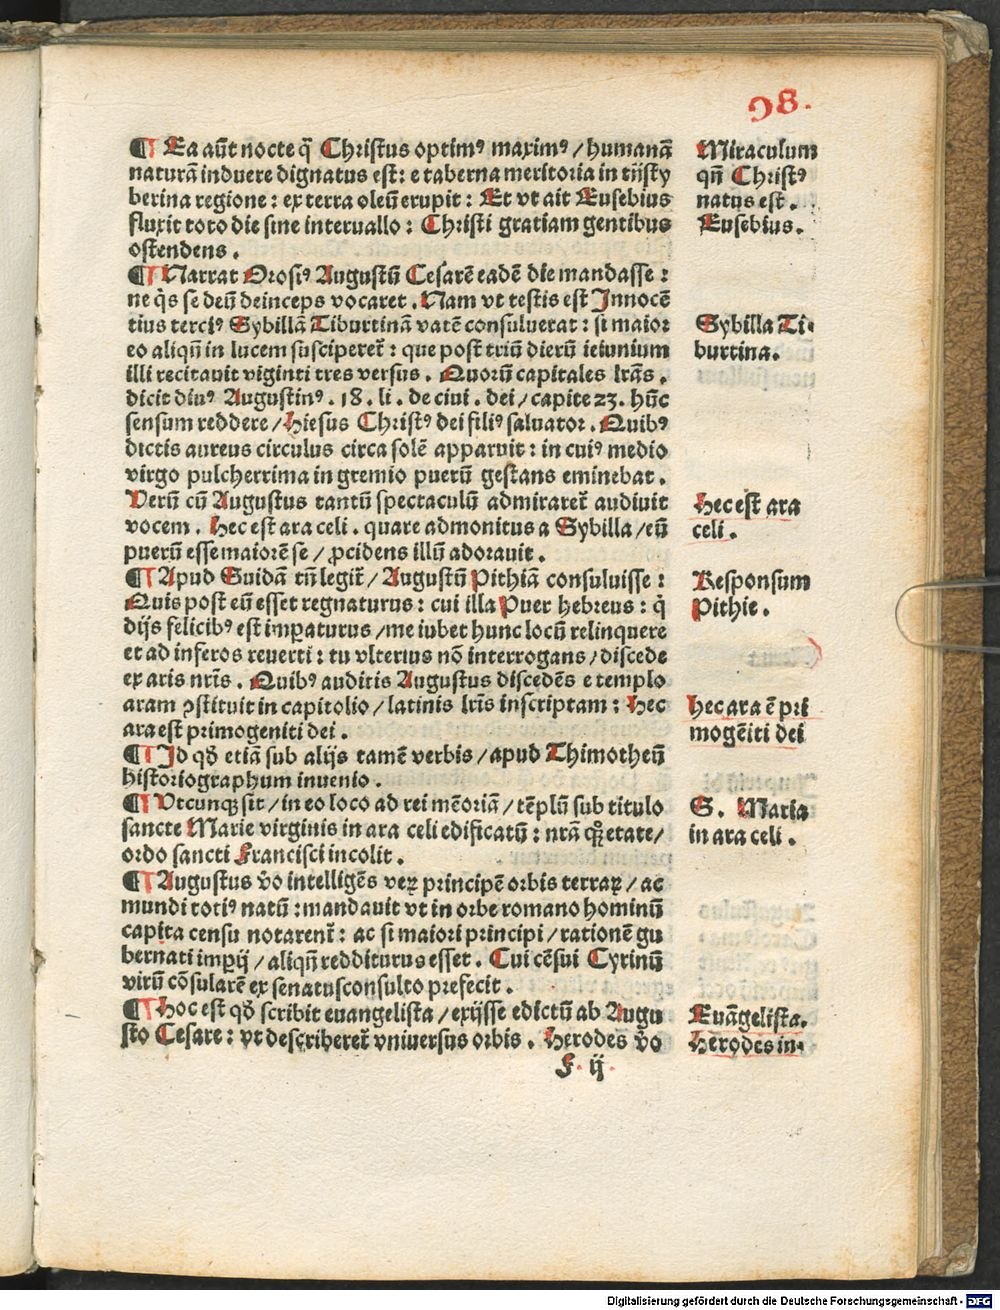 98.
¶ Ea aūt nocte q̄ Christus optimꝰ maximꝰ / humanā
naturā induere dignatus est: e taberna meritoria in trijsty
berina regione: ex terra oleū erupit: Et vt ait Eusebius
fluxit toto die sine interuallo: Christi gratiam gentibus
ostendens.
¶ Narrat Orosiꝰ Augustū Cesarē eadē die mandasse:
ne q̇s se deū deinceps vocaret. Nam vt testis est Innocē
tius terciꝰ Sybillā Tiburtinā vatē consuluerat: si maior
eo aliqn̄ in lucem susciperet̄: que post triū dierū ieiunium
illi recitauit viginti tres versus. Quorū capitales lr̄as.
dicit diuꝰ Augustinꝰ. 18. li. de ciui. dei / capite 23. hūc
sensum reddere / Hiesus Christꝰ dei filiꝰ saluator. Quibꝰ
dictis aureus circulus circa solē apparuit: in cuiꝰ medio
virgo pulcherrima in gremio puerū gestans eminebat.
Verū cū Augustus tantū spectaculū admiraret̄ audiuit
vocem. Hec est ara celi. quare admonitus a Sybilla / eū
puerū esse maiorē se / ꝓcidens illū adorauit.
¶ Apud Suidā tn̄ legit̄ / Augustū Pithiā consuluisse:
Quis post eū esset regnaturus: cui illa Puer hebreus: q̇
dijs felicibꝰ est imꝑaturus / me iubet hunc locū relinquere
et ad inferos reuerti: tu vlterius nō interrogans / discede
ex aris nr̄is. Quibꝰ auditis Augustus discedēs e templo
aram ꝯstituit in capitolio / latinis lr̄is inscriptam: Hec
ara est primogeniti dei.
¶ Id qđ etiā sub alijs tamē verbis / apud Thimotheū
historiographum inuenio.
¶ Vtcunqꝫ sit / in eo loco ad rei mēoriā / tēplū sub titulo
sancte Marie virginis in ara celi edificatū: nr̄a qꝫ etate /
ordo sancti Francisci incolit.
¶ Augustus v̄o intelligēs veꝝ principē orbis terraꝝ / ac
mundi totiꝰ natū: mandauit vt in orbe romano hominū
capita censu notarent̄: ac si maiori principi / rationē gu
bernati imꝑij / aliqn̄ redditurus esset. Cui cēsui Cyrinū
virū cōsularē ex senatusconsulto prefecit.
¶ Hoc est qđ scribit euangelista / exijsse edictū ab Augu
sto Cesare: vt describeret̄ vniuersus orbis. Herodes v̄o
F. ij.
Miraculum
qn̄ Christꝰ
natus est.
Eusebius.
Sybilla Ti
burtina.
Hec est ara
celi.
Responsum
Pithie.
Hec ara ē pri
mogēiti dei
S. Maria
in ara celi.
Euāgelista.
Herodes in
Digitalisierung gefördert durch die Deutsche Forschungsgemeinschaft - DFG